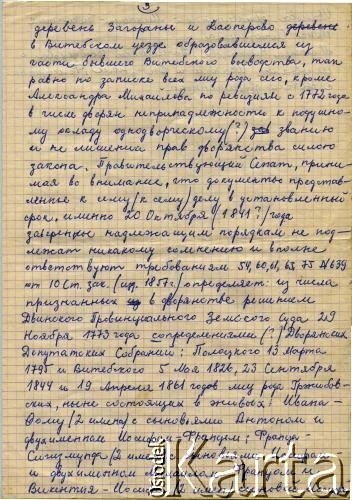 3
деревень Загораны и Касперово деревень
в Витебском уезде образовавшемся из
части бывшего Витебского воеводства, так
равно по записке всех лиц рода сего, кроме
Александра Михайлова по ревизиям с 1772 года
в числе дворян непринадлежности к подушно-
му окладу однодворческому (?) званию
и не лишения прав дворянства силою
закона. Правительствующий Сенат, прини-
мая во внимание, что документы представ-
ленные к сему /к сему/ делу в установленный
срок, именно 20 Октября /1841?/ года
заверенные надлежащим порядкам не под-
лежат никакому сомнению и вполне
ответствуют требованиям 54, 60, 61, 63, 75
от 10 Ст. зак. (изд. 1857 г.) определяет: из числа
признанных в дворянстве решением
Двинского Провинциального Земского Суда 29
Ноября 1773 года сопределениями (?) Дворянских
Депутатских Собраний: Полоцкого 13 Марта
1795 и Витебского 5 Мая 1826, 23 Сентября
1844 и 19 Апреля 1861 годов лиц рода Гржибов-
ских, ныне состоящих в живых: Ивана-
Фому /2 имена/ с сыновьями Антоном и
двухименном Иосифом, Францом; Франца-
Сигизмунда /2 имена/ с сыновьями
и двухименном Михаилом Францом и
Викентия-
Ośrodek
Karta